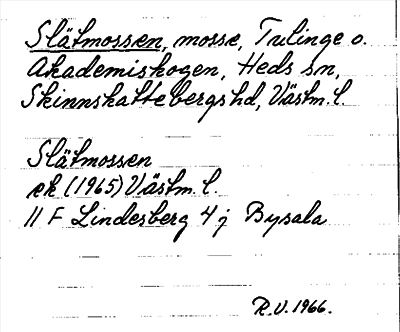 Slätmossen, mosse, Tulinge o.
Akademiskogen, Heds sn,
Skinnskattebergs hd, Västm. l.
Slätmossen
ek (1965) Västm. l.
11 F Lindesberg 4 j Bysala
R.U. 1966.